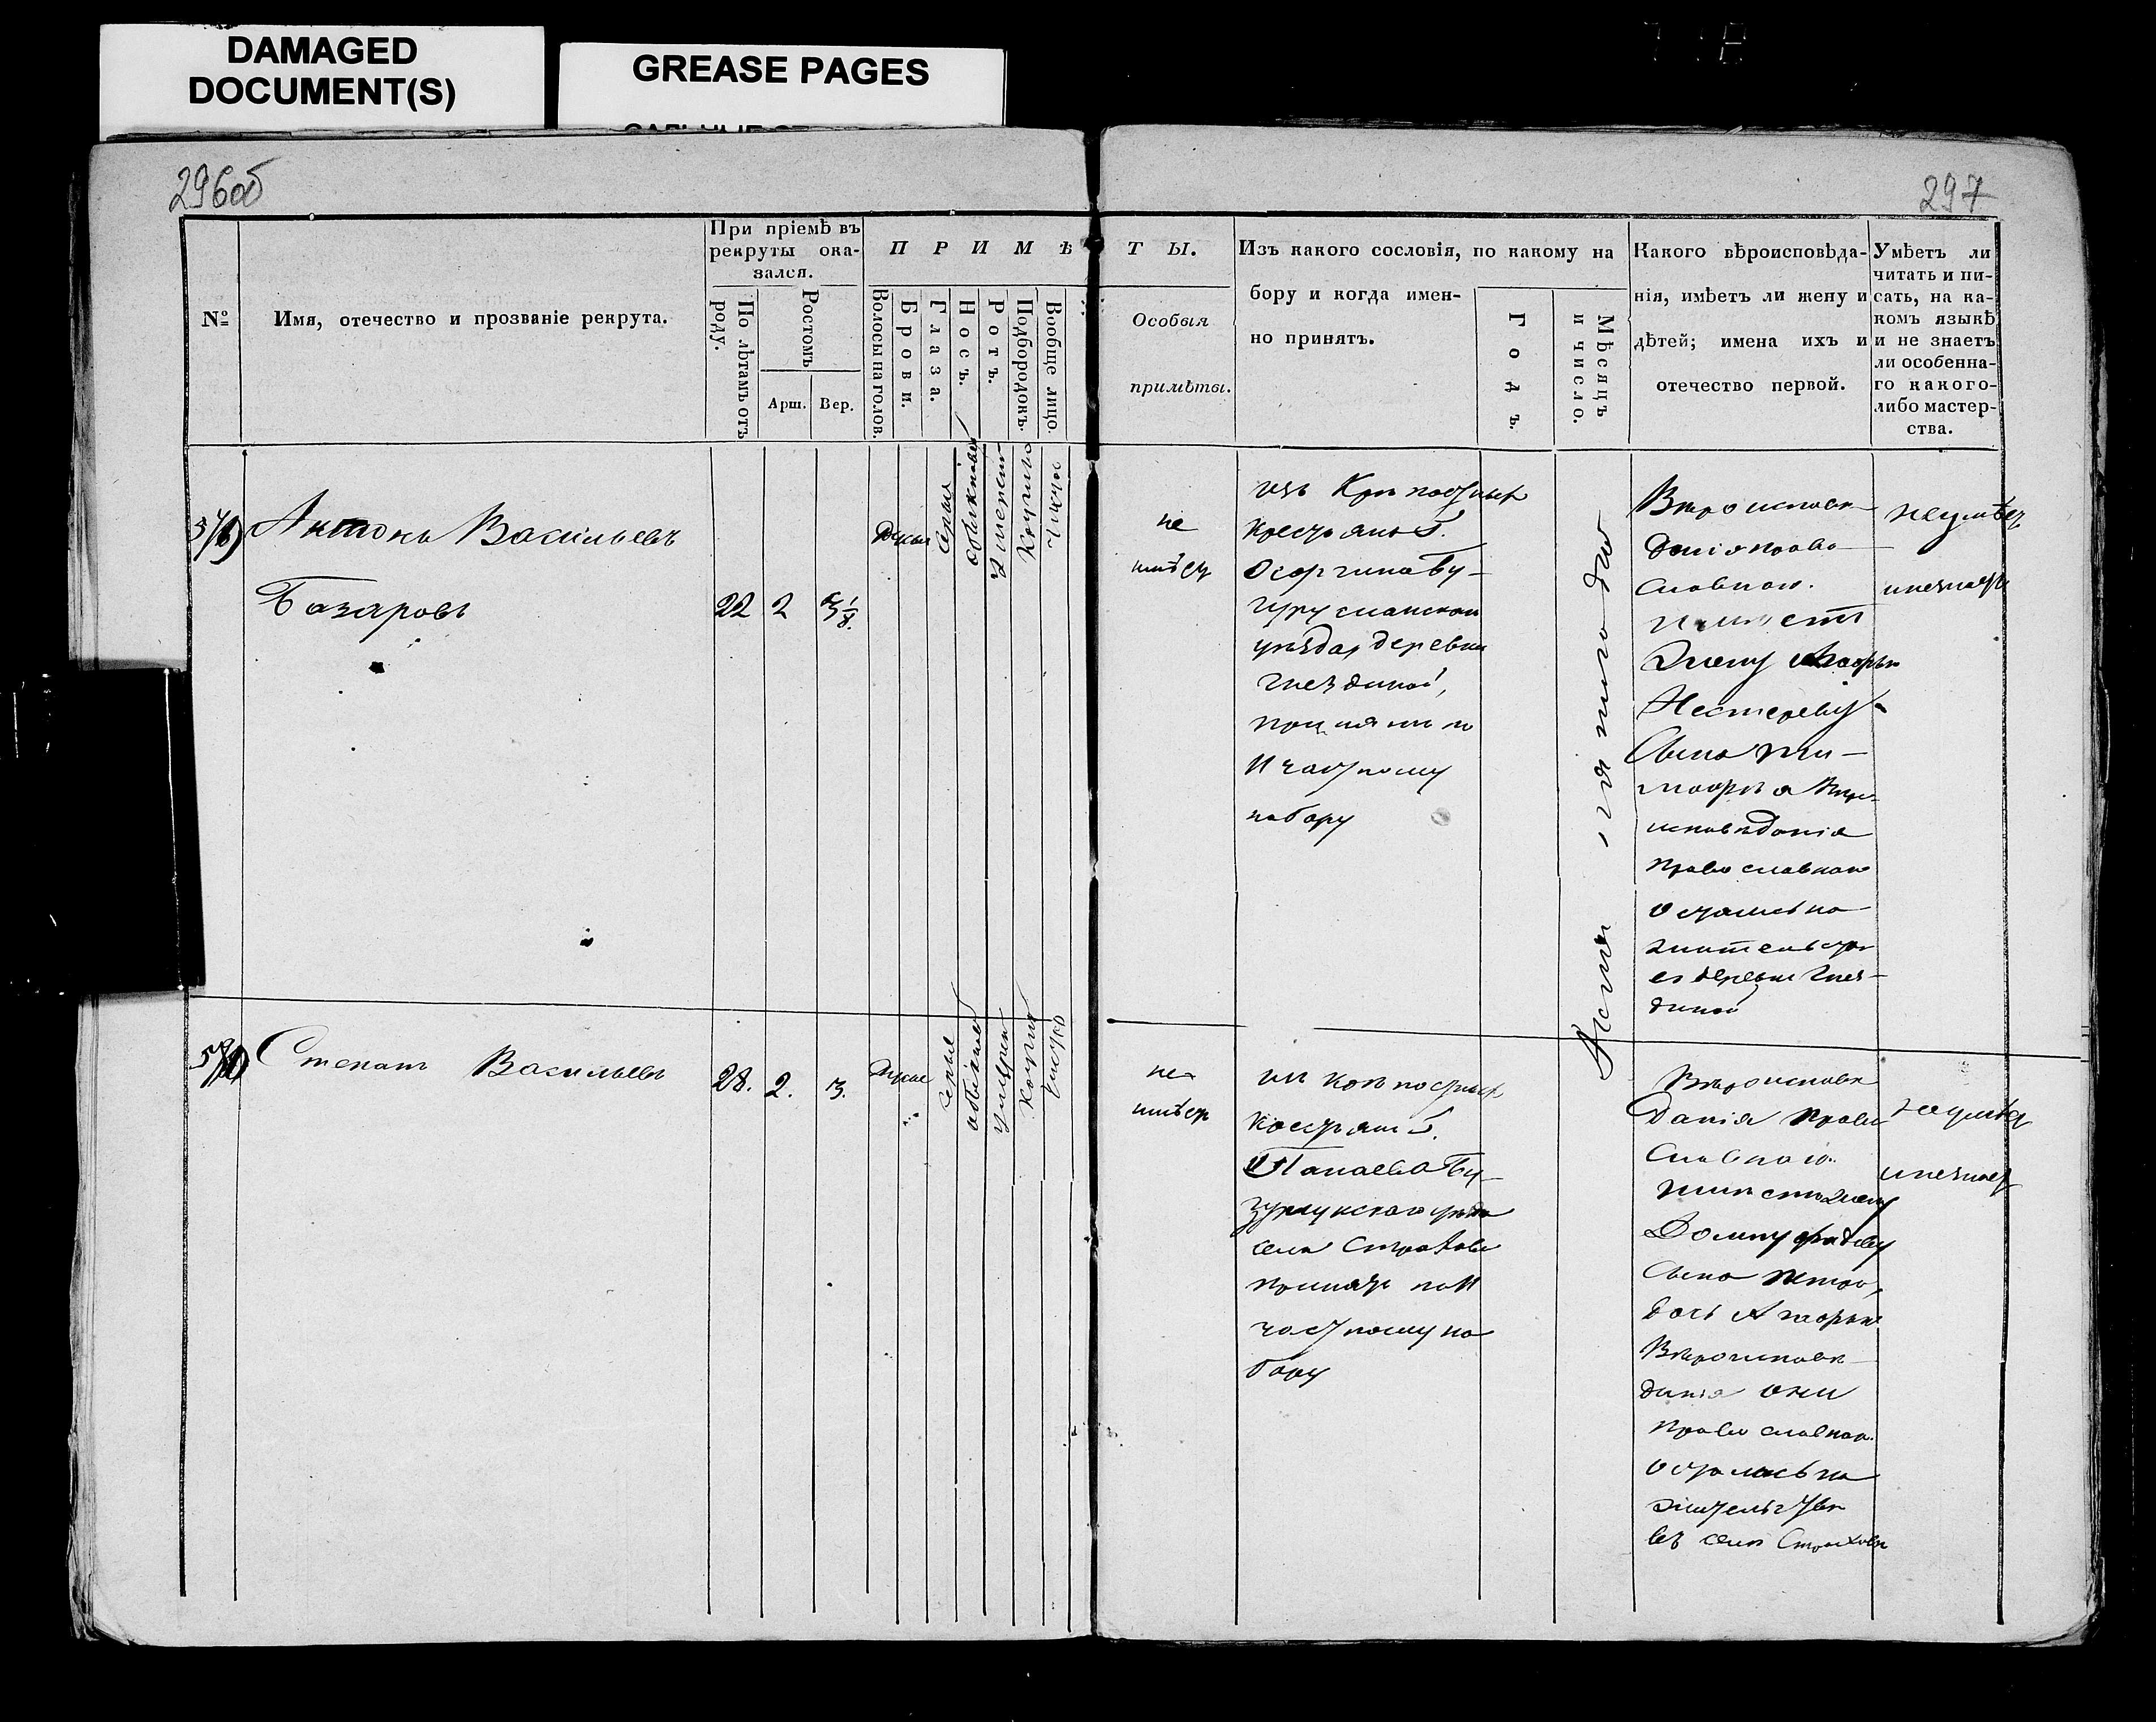 DAMAGED
DOCUMENT(S)
GREASE PAGES
296об
297
№
Имя, отечество и прозваніе рекрута.
При пріемѣ въ
рекруты ока-
зался.
По лѣтамъ отъ
роду.
Ростомъ
Арш.
Вер.
ПРИМѢ
Волосы на голов.
Брови.
Глаза.
Носъ.
Ротъ.
Подбородокъ.
Вообще лицо.
ТЫ.
Особыя
примѣты.
Изъ какого сословія, по какому на
бору и когда имен-
но принятъ.
Годъ.
Мѣсяцъ
и число.
Какого вѣроисповѣда-
нія, имѣетъ ли жену и
дѣтей; имена ихъ и
отечество первой.
Умѣетъ ли
читать и пи-
сать, на ка-
комъ языкѣ
и не знаетъ
ли особенна-
го какого-
либо мастер-
ства.
Антонъ Васильевъ
Базаровъ
22
2
3 1/8.
русыя
сѣрыя
обыкновен
умерен
Кругло
чисто
не
имѣет
изъ Крѣпостных
крестьянъ Г.
Осоргина Бу-
гурусланскаго
уѣзда, деревни
Гнездиной,
принятъ по
11 частному
набору
Вѣроисповѣ
данія право
славнаго.
имѣетъ
Жену
Нестереву
сына Ти-
Вѣро-
исповѣданія
православнаго
остались на
жительстве
въ деревне Гнез-
диной
неумѣет
и не знает
Степанъ Васильевъ
28.
2.
3.
русые
серые
обыкнов
умерен
Кругло
чисто
не
имѣет
изъ крѣпостных
крестьянъ Г.
Панаева Бу-
зулукского уезда
села Страхова
принятъ по 11
частному на
бору
Вѣроисповѣ
данія право
славнаго.
имѣетъ жену
Домну
сына Петра,
дочь
Вѣроисповѣ
данія они
православнаго.
остались на
жительстве
въ селе Страхове
неумѣет
и не знает